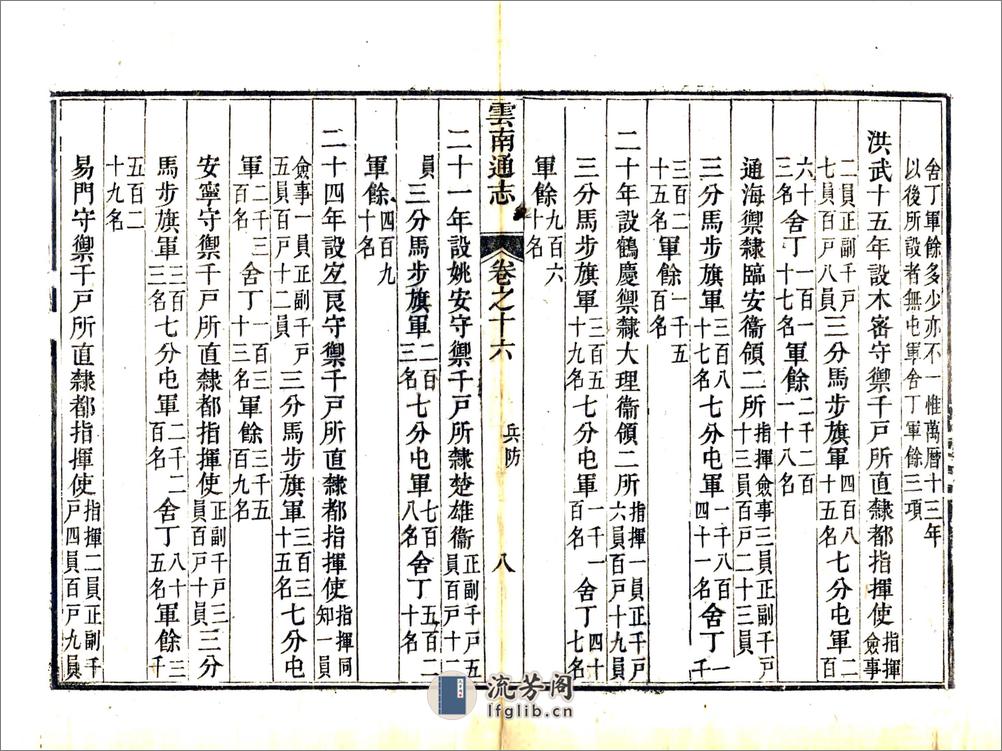 舍丁軍餘多少亦不一惟萬曆十三年
以後所設者無屯軍舍丁軍餘三項
洪武十五年設木密守禦千戶所直隸都指揮使指揮僉事
二員正副千戶七員百戶八員三分馬步旗軍四百八十五名七分屯軍二百
六十三名舍丁一百一十七名軍餘二千二百一十八名
通海禦隸臨安衞領二所指揮僉事三員正副千戶十三員百戶二十三員
三分馬步旗軍三百八十七名七分屯軍一千八百四十一名舍丁一千
三百二十五名軍餘一千五百名
二十年設鶴慶禦隸大理衞領二所指揮一員正千戶六員百戶十九員
三分馬步旗軍三百五十九名七分屯軍一千一百名舍丁四十七名
軍餘九百六十名
雲南通志 卷之十六 兵防 八
二十一年設姚安守禦千戶所隸楚雄衞正副千戶五員百戶十二
員三分馬步旗軍二百三名七分屯軍七百八名舍丁五百二十名
軍餘四百九十名
二十四年設宐良守禦千戶所直隸都指揮使指揮同知一員
僉事一員正副千戶五員百戶十二員三分馬步旗軍三百三十五名七分屯
軍二千三百名舍丁一百三十三名軍餘三千五百九名
安寧守禦千戶所直隸都指揮使正副千戶三員百戶十員三分
馬步旗軍三百三名七分屯軍二千二百名舍丁八十五名軍餘三千
五百二十九名
易門守禦千戶所直隸都指揮使指揮二員正副千戶四員百戶九員
流芳阁
lfglib.cn